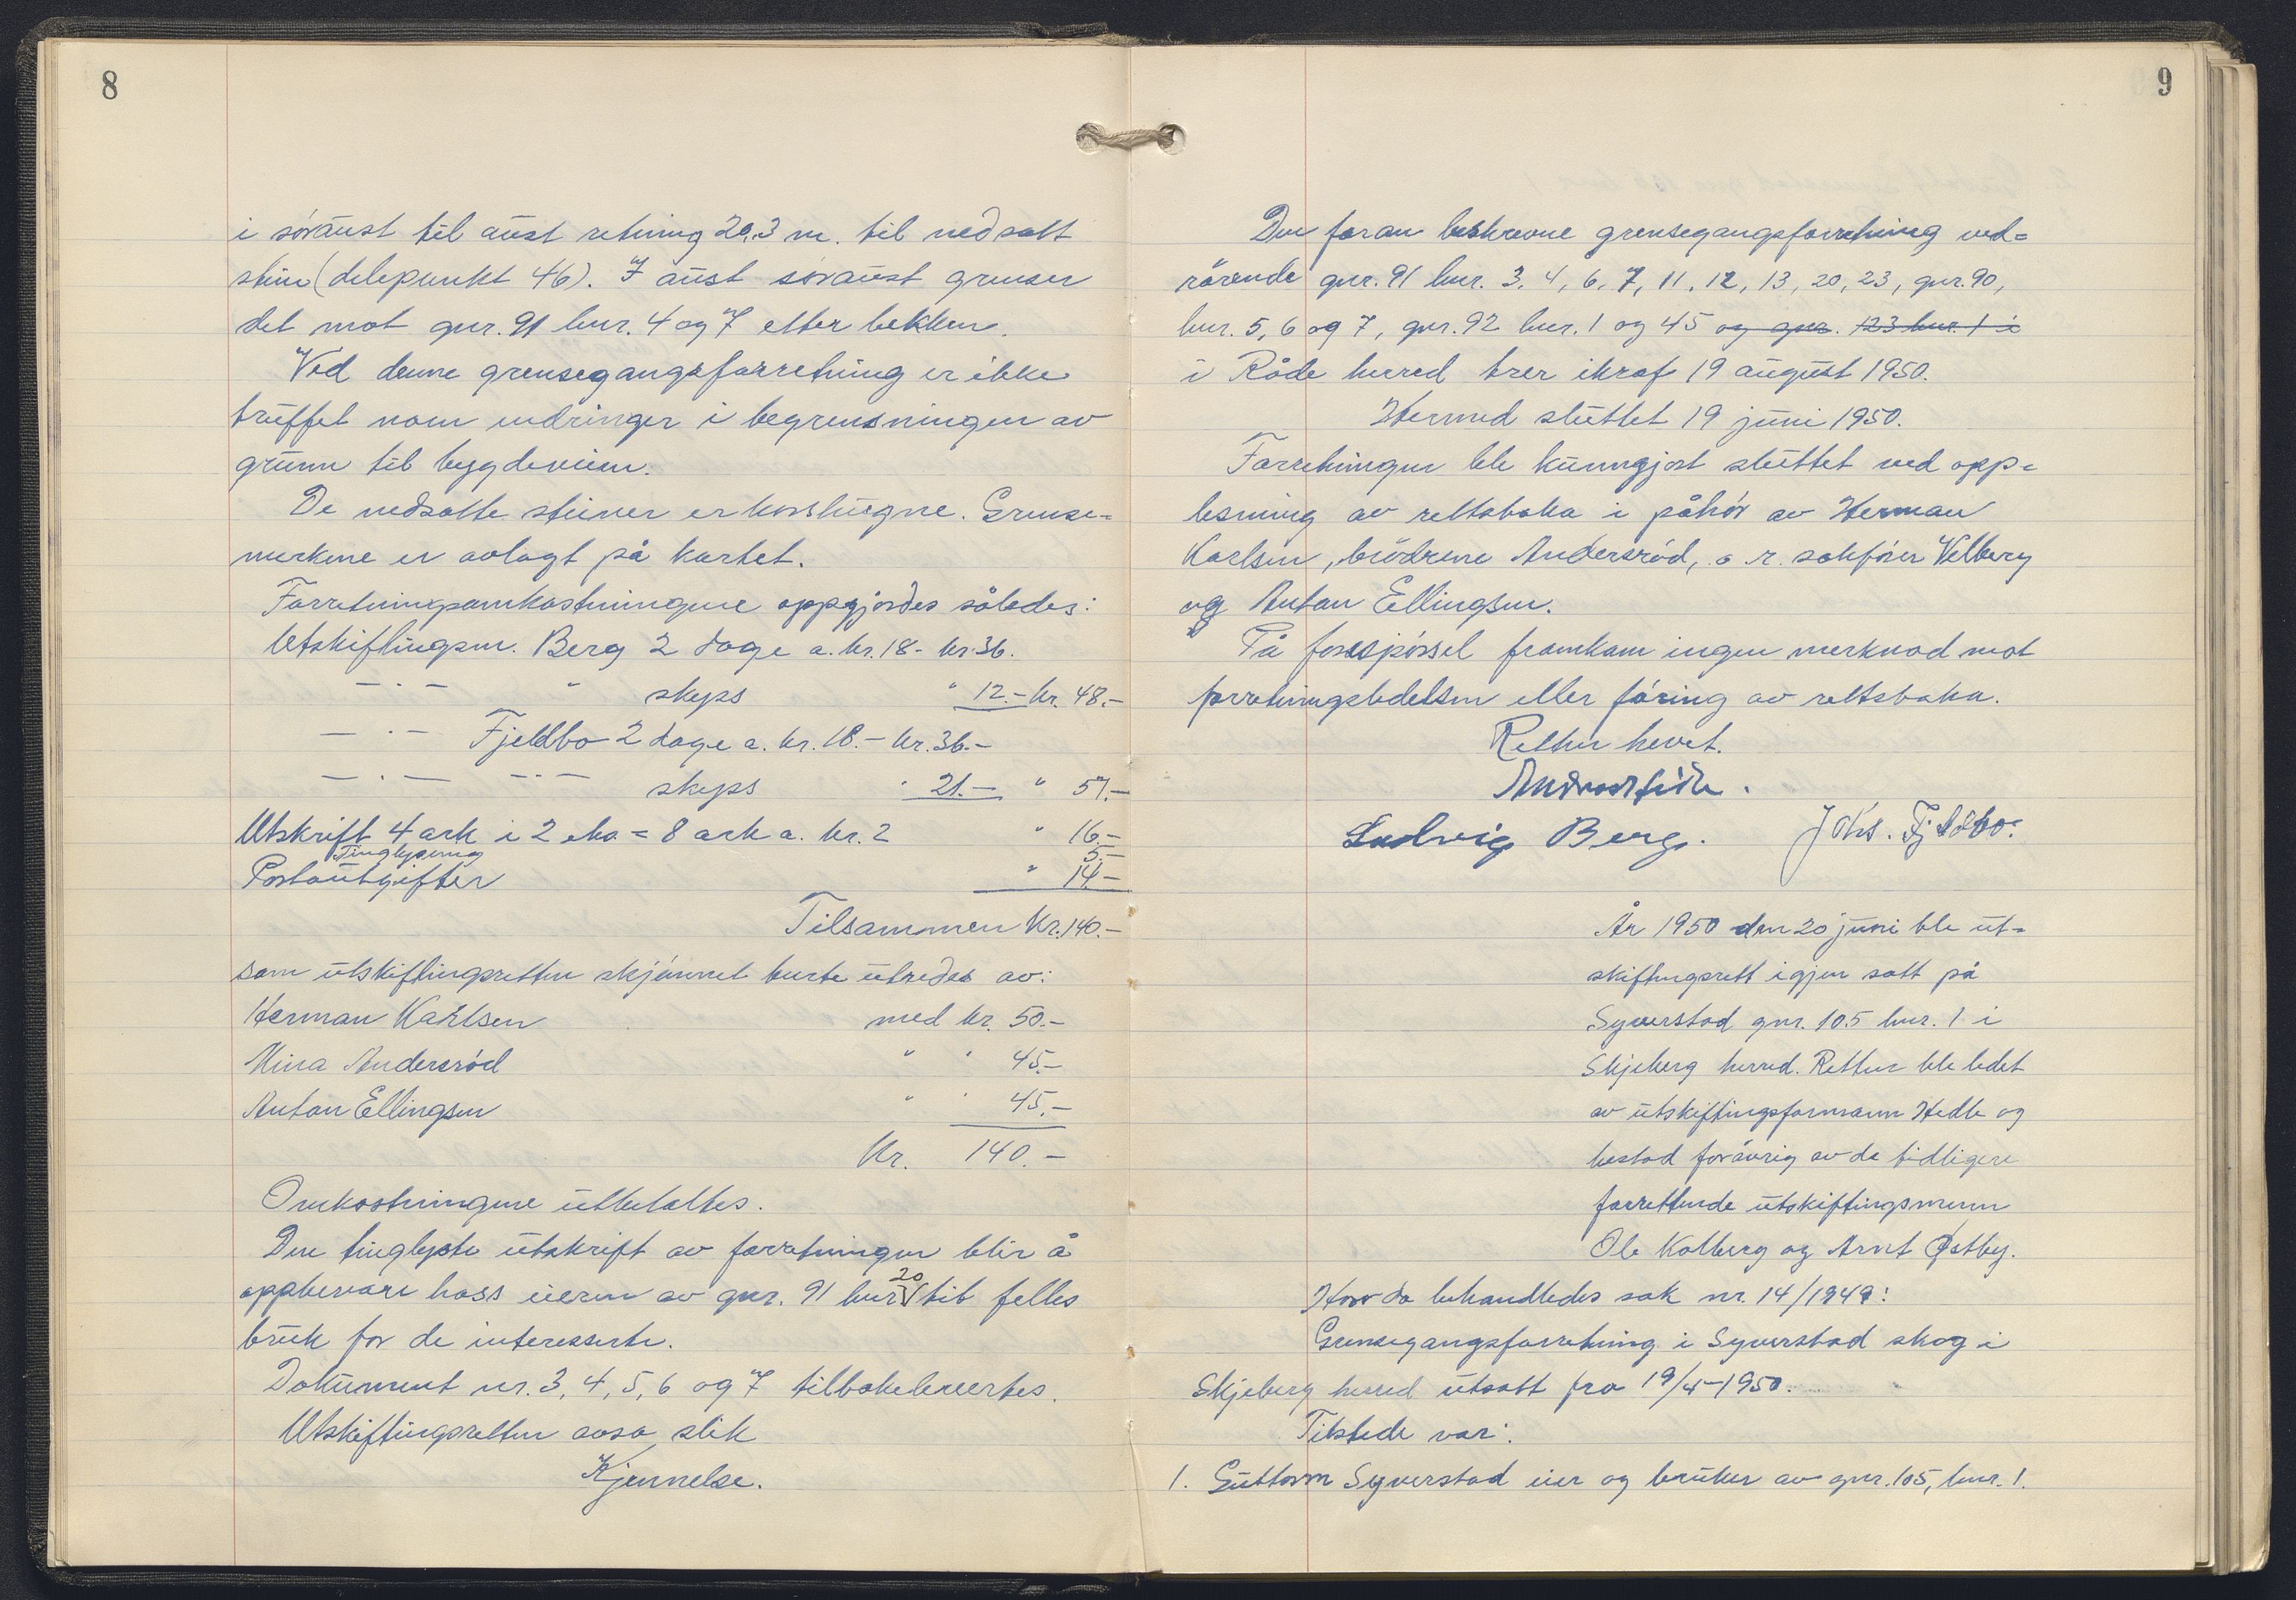 8
i søraust til aust retning 20,3 m. til nedsatt
stein (delepunkt 46). I aust søraust grenser
det mot gnr. 91 bnr. 4 og 7 etter bekken.
Ved denne grensegangsforretning er ikke
truffet noen endringer i begrensningen av
grunn til bygdeveien.
De nedsatte steiner er korshugne. Grense-
merkene er avlagt på kartet.
Forretningsomkostningene oppgjordes således:
Utskiftingsm. Berg 2 dage a. kr. 18.- kr. 36.
— " — " skyss " 12.- kr. 48.-
— " — Fjeldbo 2 dage a. kr. 18.- kr. 36.-
— " — — " — skyss " 21.- " 57.-
Utskrift 4 ark i 2 eks = 8 ark a. kr. 2 " 16.-
Tinglysning 5.-
Postoutgifter " 14.-
Tilsammen kr. 140.-
som utskiftingsretten skjønnet burte utredes av:
Herman Karlsen med kr. 50.-
Mina Andersrød " " 45.-
Anton Ellingsen " " 45.-
Kr. 140.-
Omkostningene utbetaltes.
Den tinglyste utskrift av forretningen blir å
oppbevare hoss eieren av gnr. 91 bnr. 20 til felles
bruk for de interesserte.
Dokument nr. 3, 4, 5, 6 og 7 tilbakelevertes.
Utskiftingsretten avsa slik
Kjennelse.
9
Den foran beskrevne grensegangsforretning ved-
rørende gnr. 91 bnr. 3, 4, 6, 7, 11, 12, 13, 20, 23, gnr. 90,
bnr. 5, 6 og 7, gnr. 92 bnr. 1 og 45 og gnr. 123 bnr. 1 i
i Råde herred trer ikraft 19 august 1950.
Hermed sluttet 19 juni 1950.
Forretningen ble kunngjort sluttet ved opp-
lesning av rettsboka i påhør av Herman
Karlsen, brødrene Andersrød, o. r. sakfører Velberg
og Anton Ellingsen.
På forespørsel framkom ingen merknad mot
forretningsledelsen eller føring av rettsboka.
Retten hevet.
Ludvig Berg. Johs. Fjeldbo.
År 1950 den 20 juni ble ut-
skiftingsrett igjen satt på
Syverstad gnr. 105 bnr. 1 i
Skjeberg herred. Retten ble ledet
av utskiftingsformann Hedle og
bestod forøvrig av de tidligere
forrettende utskiftingsmenn
Ole Kolberg og Arnt Østby.
Hvor da behandledes sak nr. 14/1949:
Grensegangsforretning i Syverstad skog i
Skjeberg herred utsatt fra 19/4-1950.
Tilstede var:
1. Guttorm Syverstad eier og bruker av gnr. 105, bnr. 1.